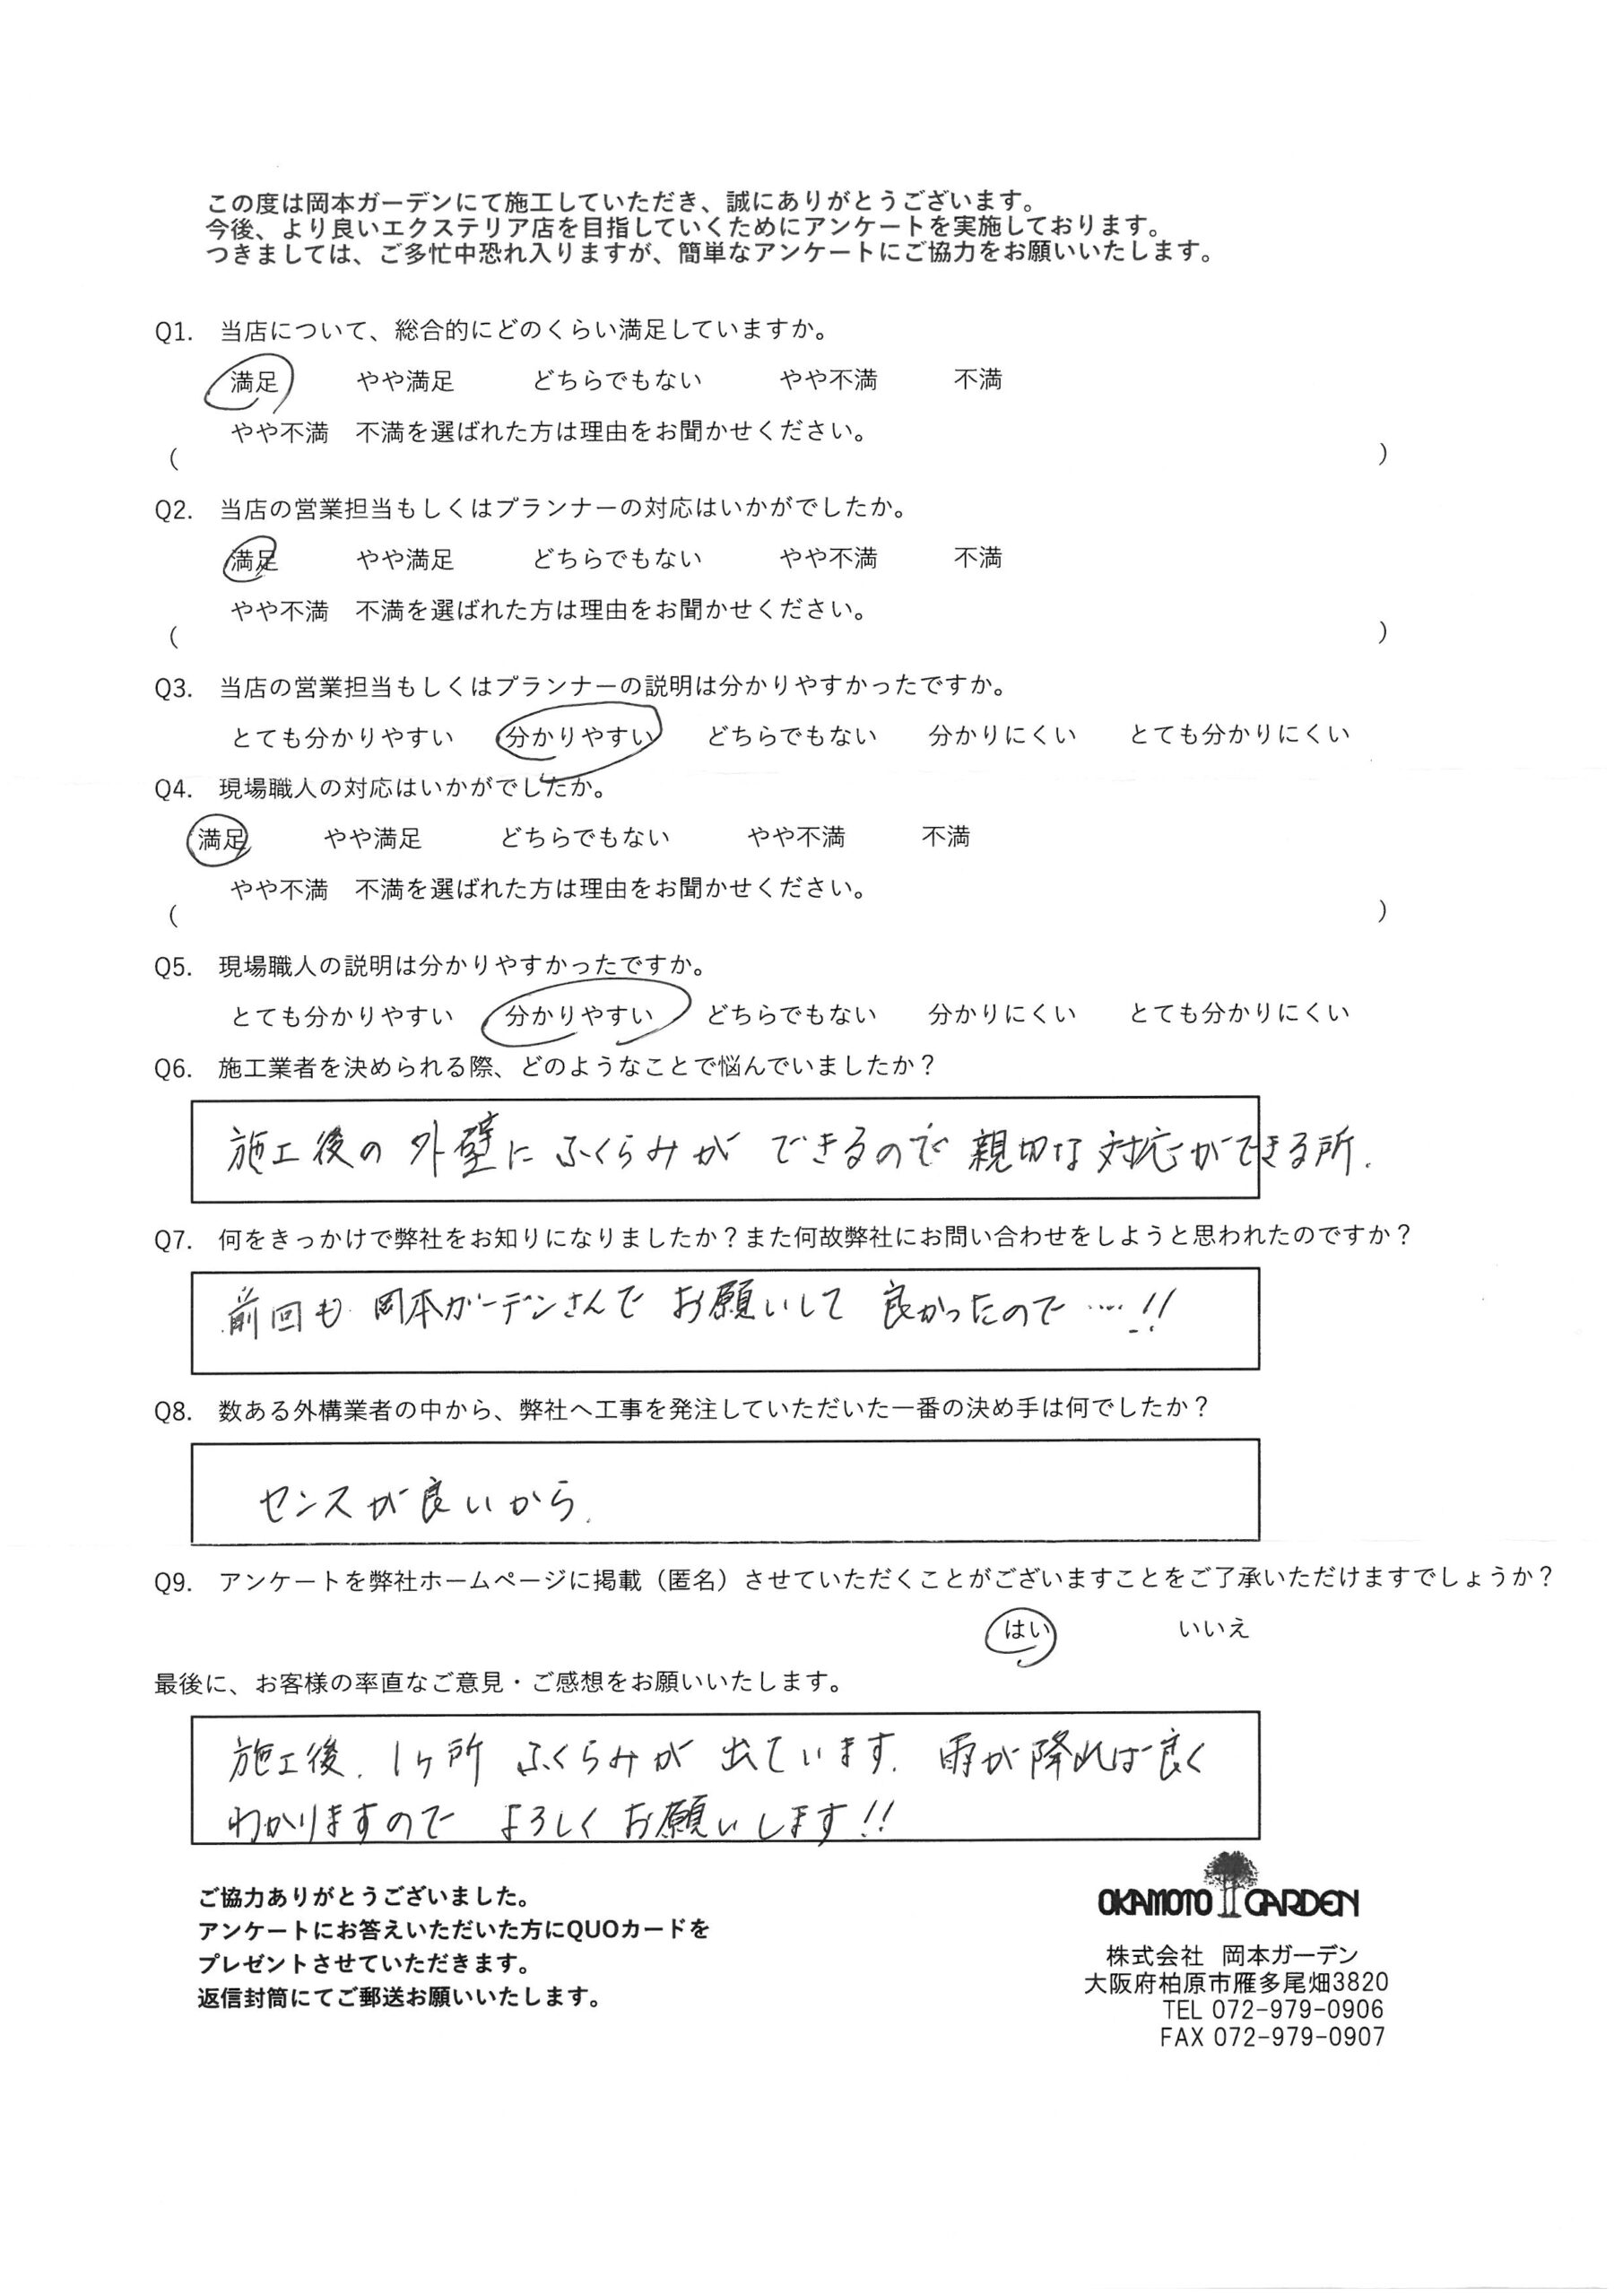 この度は岡本ガーデンにて施工していただき、誠にありがとうございます。
今後、より良いエクステリア店を目指していくためにアンケートを実施しております。
つきましては、ご多忙中恐れ入りますが、簡単なアンケートにご協力をお願いいたします。
Q1. 当店について、総合的にどのくらい満足していますか。
満足 やや満足 どちらでもない やや不満 不満
やや不満 不満を選ばれた方は理由をお聞かせください。
( )
Q2. 当店の営業担当もしくはプランナーの対応はいかがでしたか。
満足 やや満足 どちらでもない やや不満 不満
やや不満 不満を選ばれた方は理由をお聞かせください。
( )
Q3. 当店の営業担当もしくはプランナーの説明は分かりやすかったですか。
とても分かりやすい 分かりやすい どちらでもない 分かりにくい とても分かりにくい
Q4. 現場職人の対応はいかがでしたか。
満足 やや満足 どちらでもない やや不満 不満
やや不満 不満を選ばれた方は理由をお聞かせください。
( )
Q5. 現場職人の説明は分かりやすかったですか。
とても分かりやすい 分かりやすい どちらでもない 分かりにくい とても分かりにくい
Q6. 施工業者を決められる際、どのようなことで悩んでいましたか？
施工後の外壁にふくらみができるので親切な対応ができる所.
Q7. 何をきっかけで弊社をお知りになりましたか？また何故弊社にお問い合わせをしようと思われたのですか？
前回も岡本ガーデンさんでお願いして良かったので…!!
Q8. 数ある外構業者の中から、弊社へ工事を発注していただいた一番の決め手は何でしたか？
センスが良いから.
Q9. アンケートを弊社ホームページに掲載（匿名）させていただくことがございますことをご了承いただけますでしょうか？
はい いいえ
最後に、お客様の率直なご意見・ご感想をお願いいたします。
施工後. 1ヶ所 ふくらみが出ています. 雨が降れば良く
わかりますので よろしくお願いします!!
ご協力ありがとうございました。
アンケートにお答えいただいた方にQUOカードを
プレゼントさせていただきます。
返信封筒にてご郵送お願いいたします。
OKAMOTO GARDEN
株式会社 岡本ガーデン
大阪府柏原市雁多尾畑3820
TEL 072-979-0906
FAX 072-979-0907